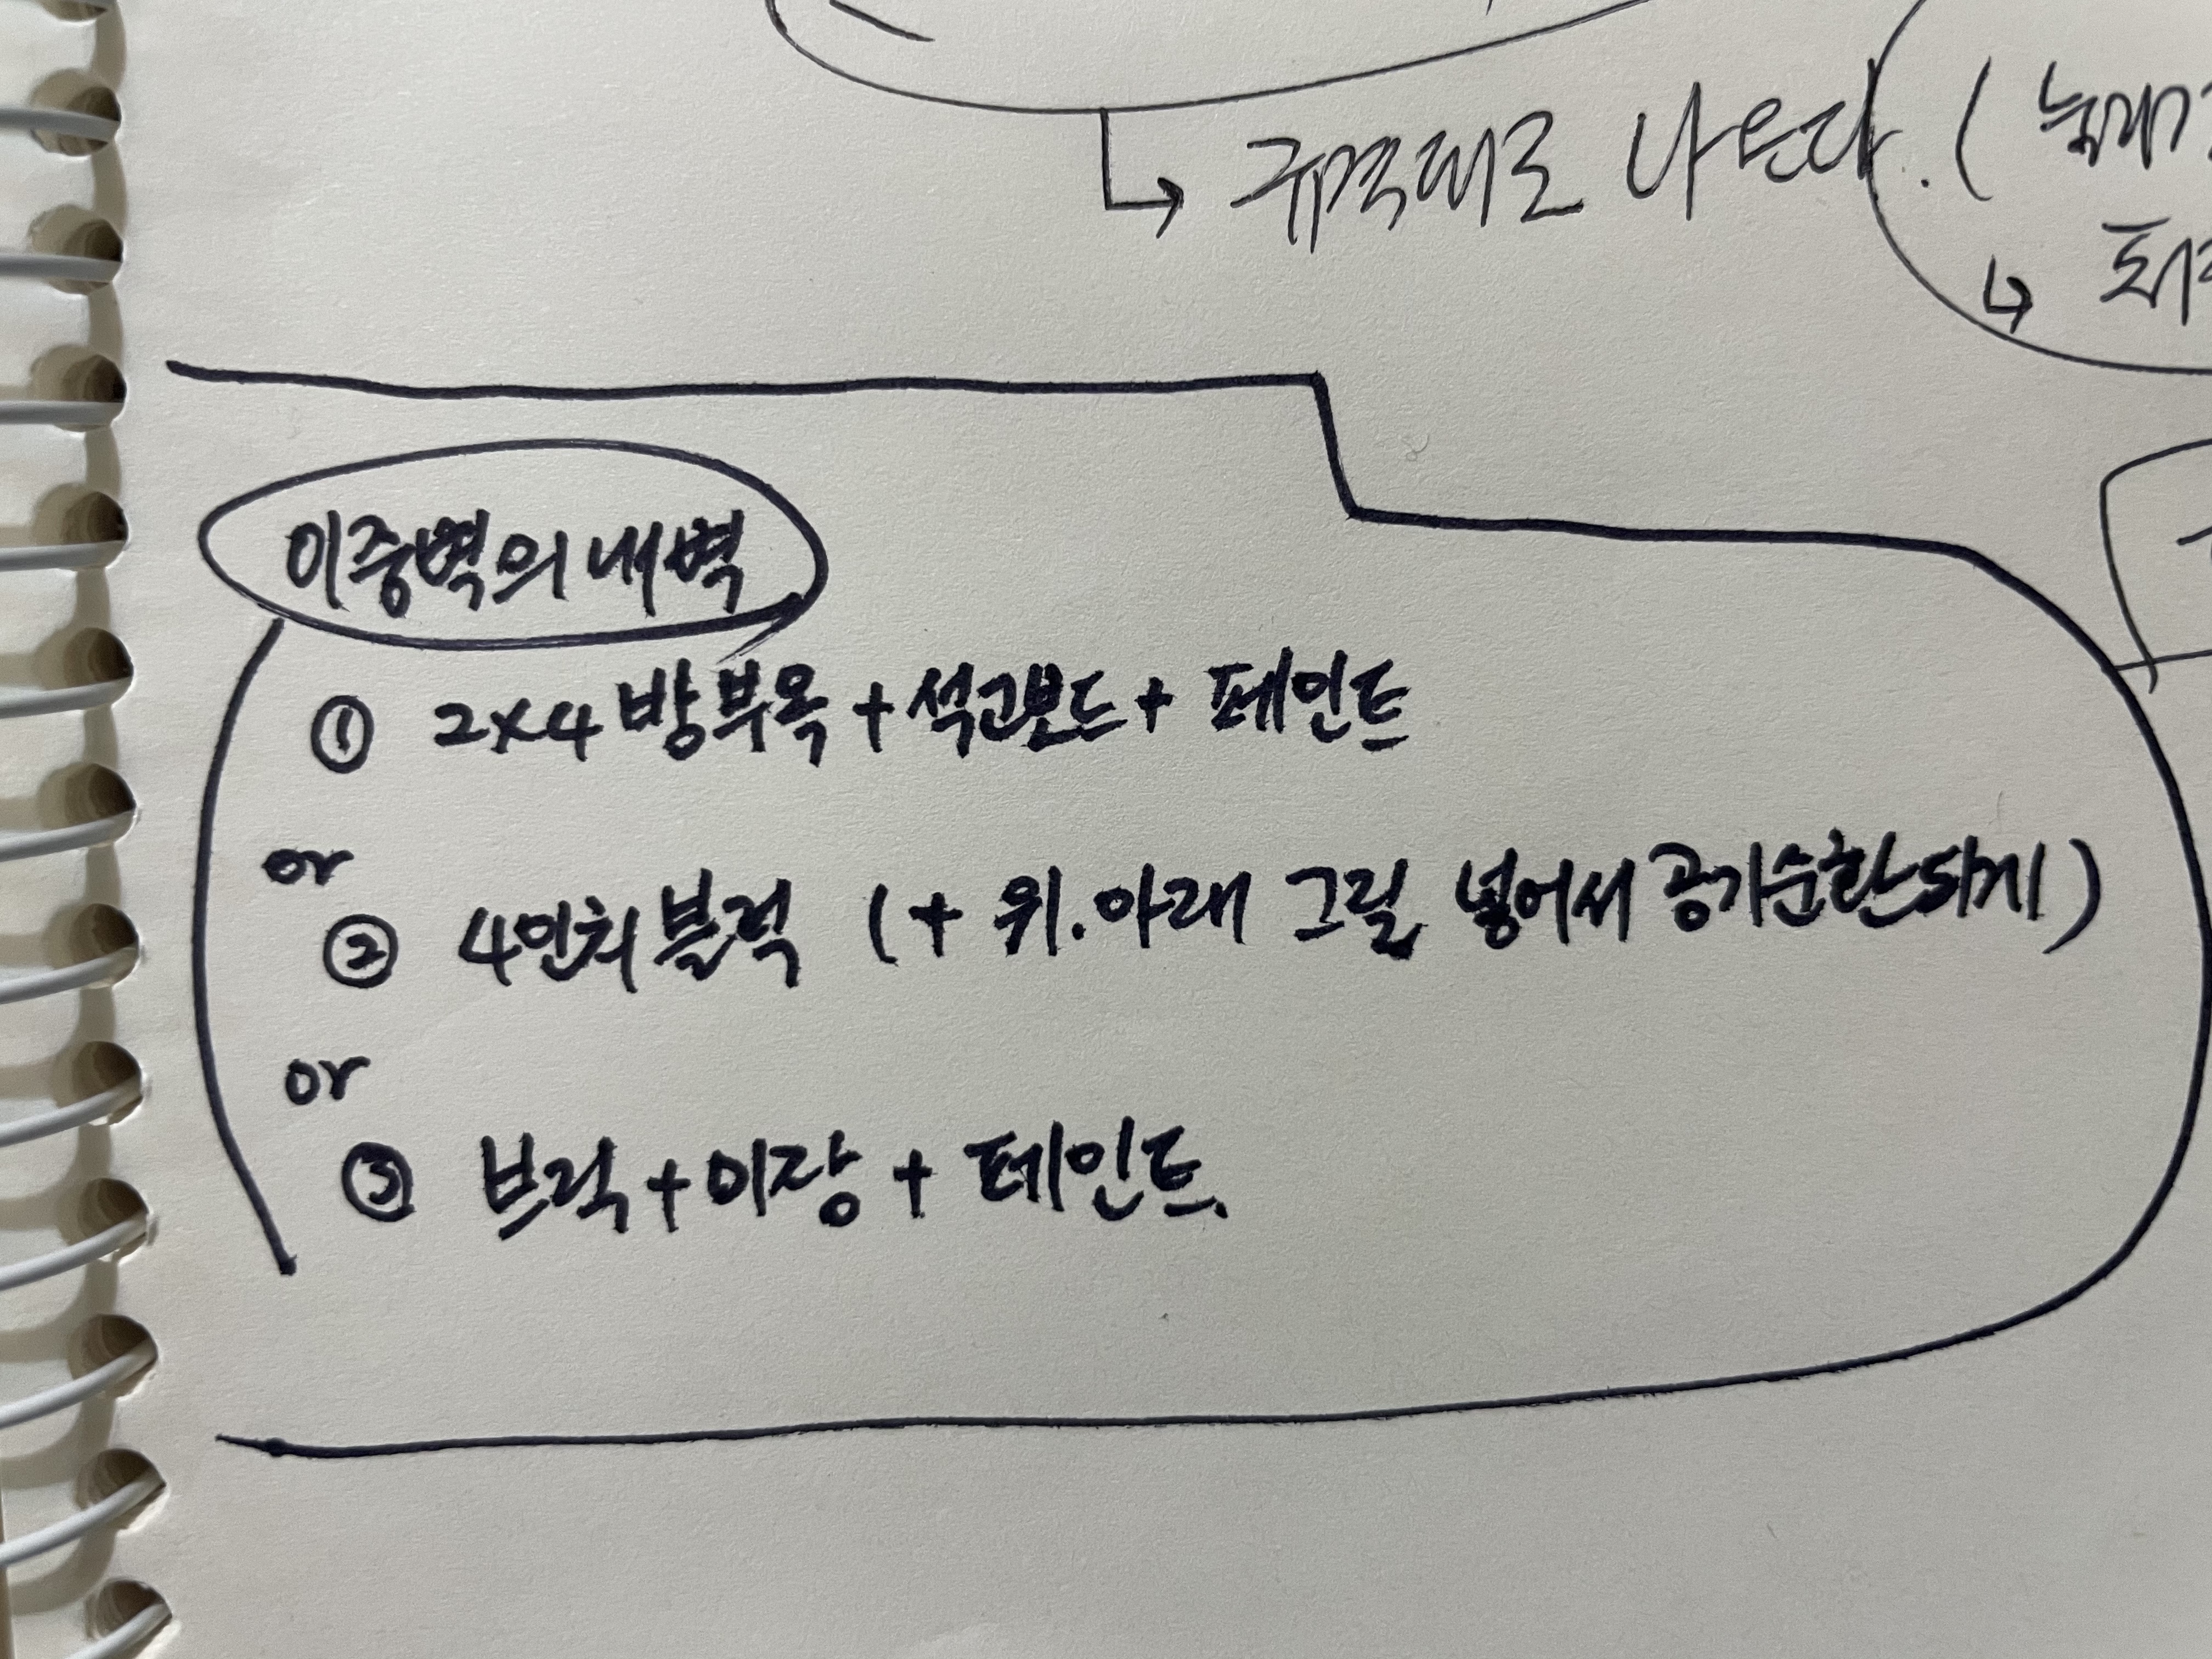 규격대로 나눈다. (
이중벽의 내벽
① 2×4 방부목 + 석고보드 + 페인트
or
② 4인치 블럭 (+ 위.아래 그릴 넣어서 공기순환되게)
or
③ 브럭 + 미장 + 페인트.